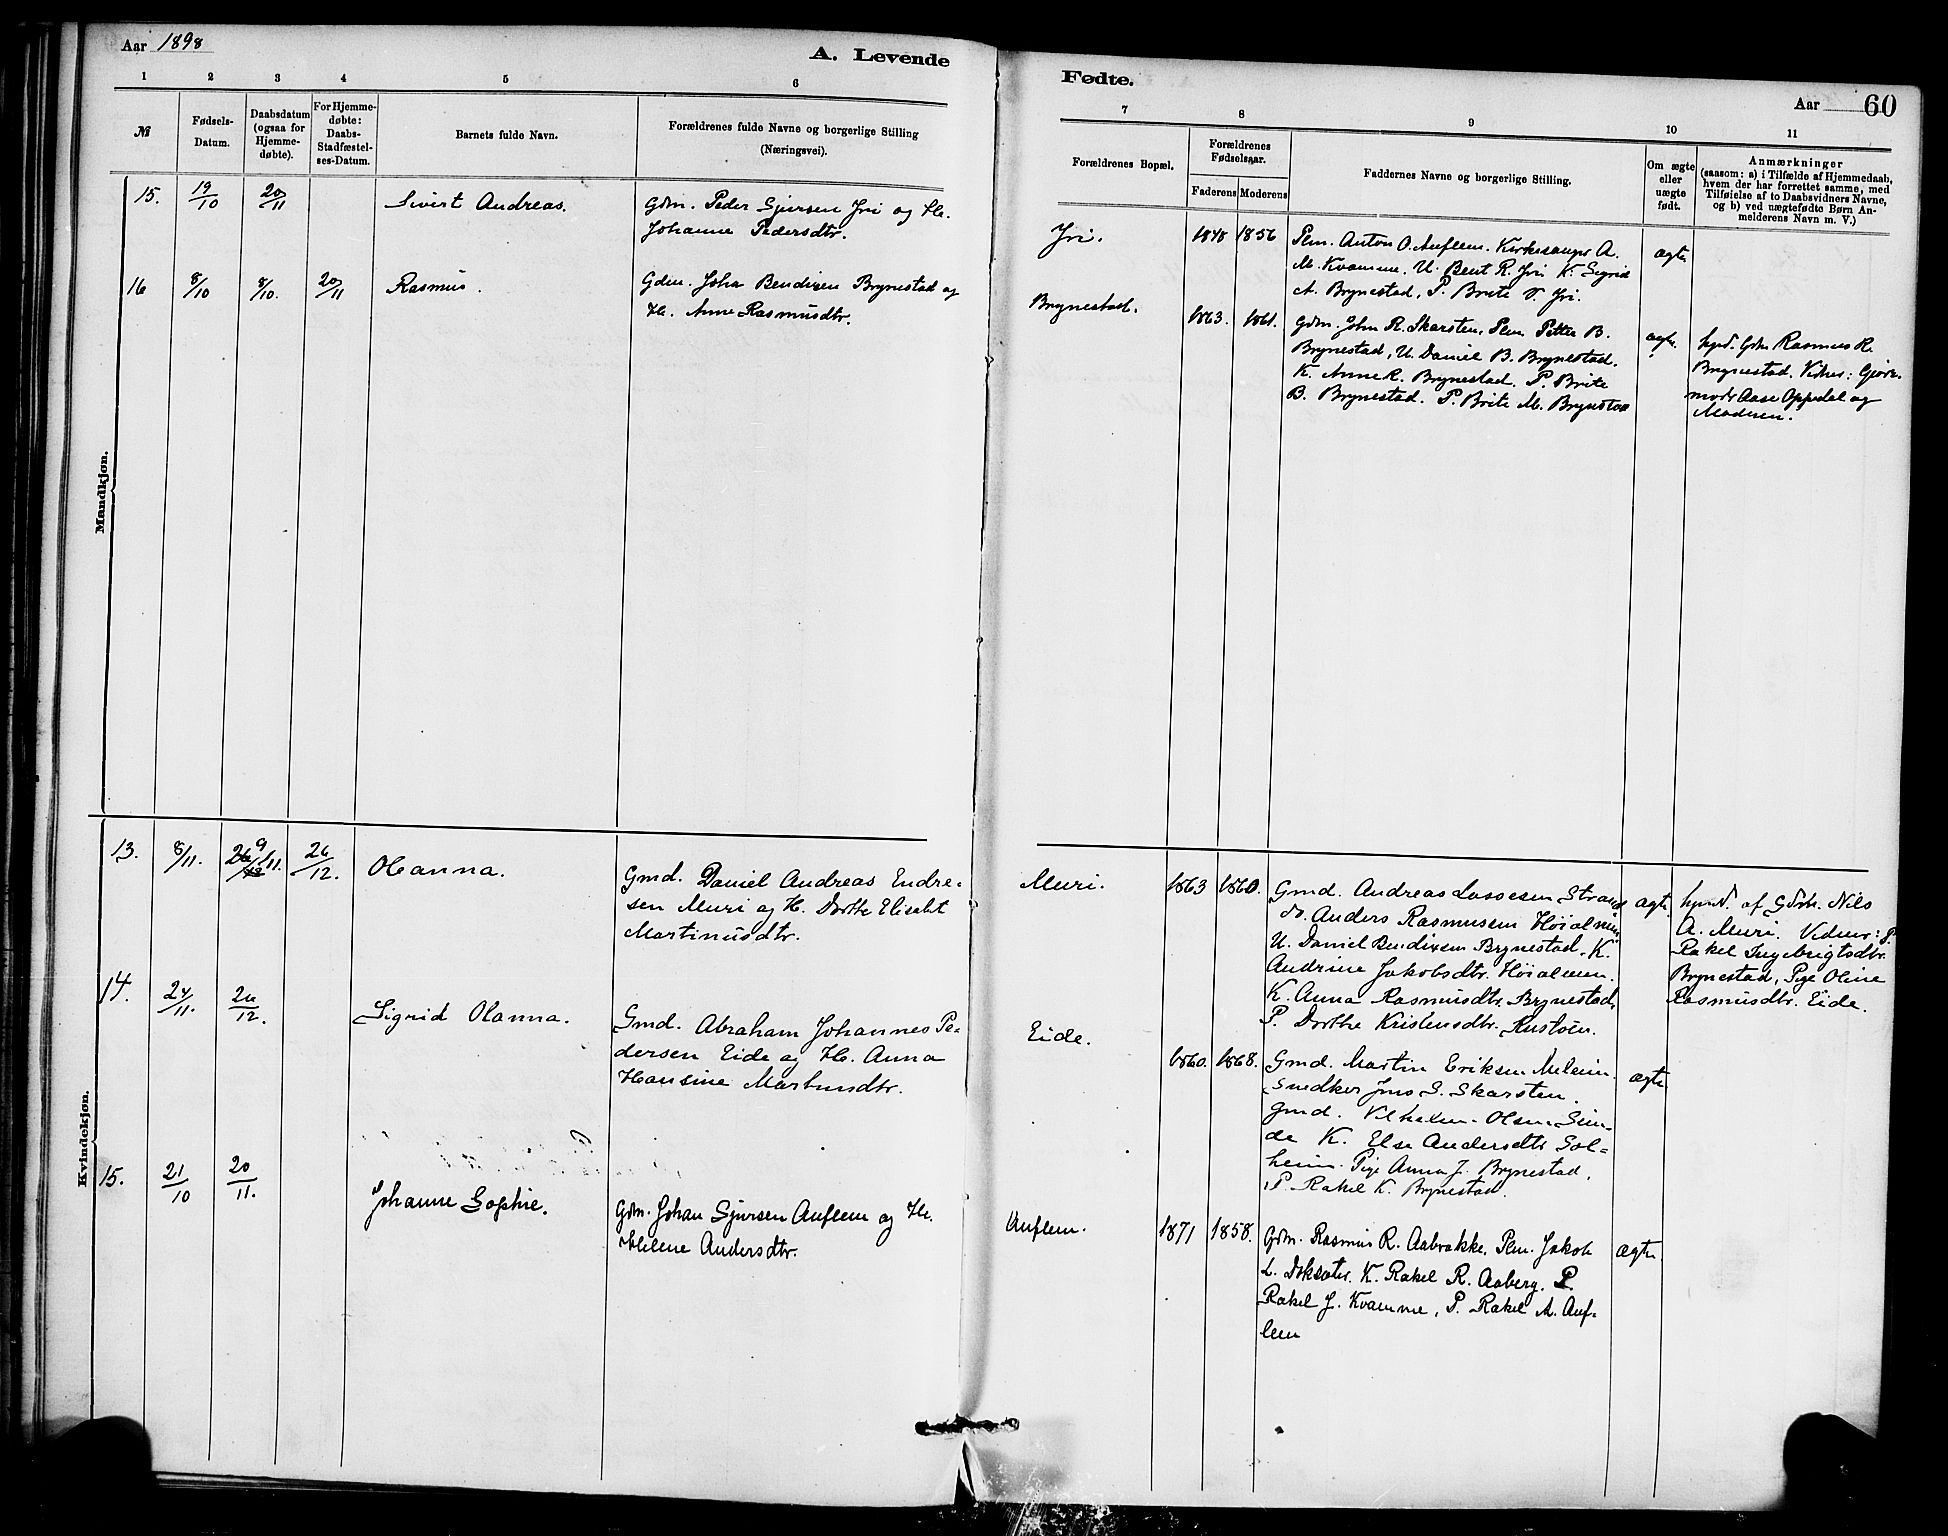 Aar 1898
A. Levende
Fødte.
Aar 60
1 2 3 4 5 6
7 8 9 10 11
№
Fødsels-
Datum.
Daabsdatum
(ogsaa for
Hjemme-
døbte).
For Hjemme-
døbte:
Daabs-
Stadfæstel-
ses-Datum.
Barnets fulde Navn.
Forældrenes fulde Navne og borgerlige Stilling
(Næringsvei).
Forældrenes Bopæl.
Forældrenes
Fødselsaar.
Faderens Moderens
Faddernes Navne og borgerlige Stilling.
Om ægte
eller
uægte
født.
Anmærkninger
(saasom: a) i Tilfælde af Hjemmedaab,
hvem der har forrettet samme, med
Tilføielse af to Daabsvidners Navne,
og b) ved uægtefødte Børn An-
melderens Navn m. V.)
Mandkjøn.
15. 19/10 20/11
Sivert Andreas.
Gdm. Peder Sjursen Yri og H.
Johanne Pedersdtr.
Yri.
1848 1856
Plm. Anton O. Auflem. Kirkesanger A.
M. Kvamme. U. Bent R. Yri K. Sigrid
A. Brynestad, P. Brite V. Yri.
ægte
16 8/10 8/10. 20/11
Rasmus.
Gdm. Joha Bendixen Brynestad og
H. Anne Rasmusdtr.
Brynestad.
1863. 1861.
Gdm. John R. Skarsten, Plm Petter B.
Brynestad, U. Daniel B. Brynestad.
K. Anne R. Brynestad. P. Brite
B. Brynestad. P. Brite M. Brynestad
ægte.
hjmd. Gdm Rasmus R.
Brynestad. Vidner: Gjorde-
modr Aase Oppedal og
Moderen.
Kvindekjøn.
13. 8/11. 9/11. 26/12.
Olanna.
Gmd. Daniel Andreas Endre-
sen Muri og H. Dorthe Elisabet
Martinusdtr.
Muri.
1863 1860.
Gmd. Andreas Lassesen Strand
do. Anders Rasmussen Høialmen
U. Daniel Bendixen Brynestad, K.
Andrine Jakobsdtr. Høialmen.
K. Anna Rasmusdtr. Brynestad,
P. Dorthe Kristensdtr. Rustøen.
ægte.
hjmd. af Gdbr. Nils
A. Muri. Vidner: P.
Rakel Ingebrigtsdtr.
Brynestad, Pige Oline
Rasmusdtr. Eide.
14. 24/11. 26/12.
Sigrid Olanna.
Gmd. Abraham Johannes Pe-
dersen Eide og H. Anna
Hansine Martinusdtr.
Eide.
1860. 1868.
Gmd. Martin Eriksen Meleim.
Snedker Jens S. Skarsten.
Gmd. Vilhelm Olsen Sun-
de K. Else Andersdtr Sol-
heim. Pige Anna J. Brynestad,
P. Rakel K. Brynestad.
ægte
15. 21/10 20/11.
Johanne Sophie.
Gdm. Johan Sjursen Auflem og H.
Helene Andersdtr.
Auflem.
1871 1858.
Gdm. Rasmus R. Aabrekke, Plm. Jakob
L. K. Rakel R. Aaberg. P.
Rakel J. Kvamme, P. Rakel A. Auf-
lem
ægte